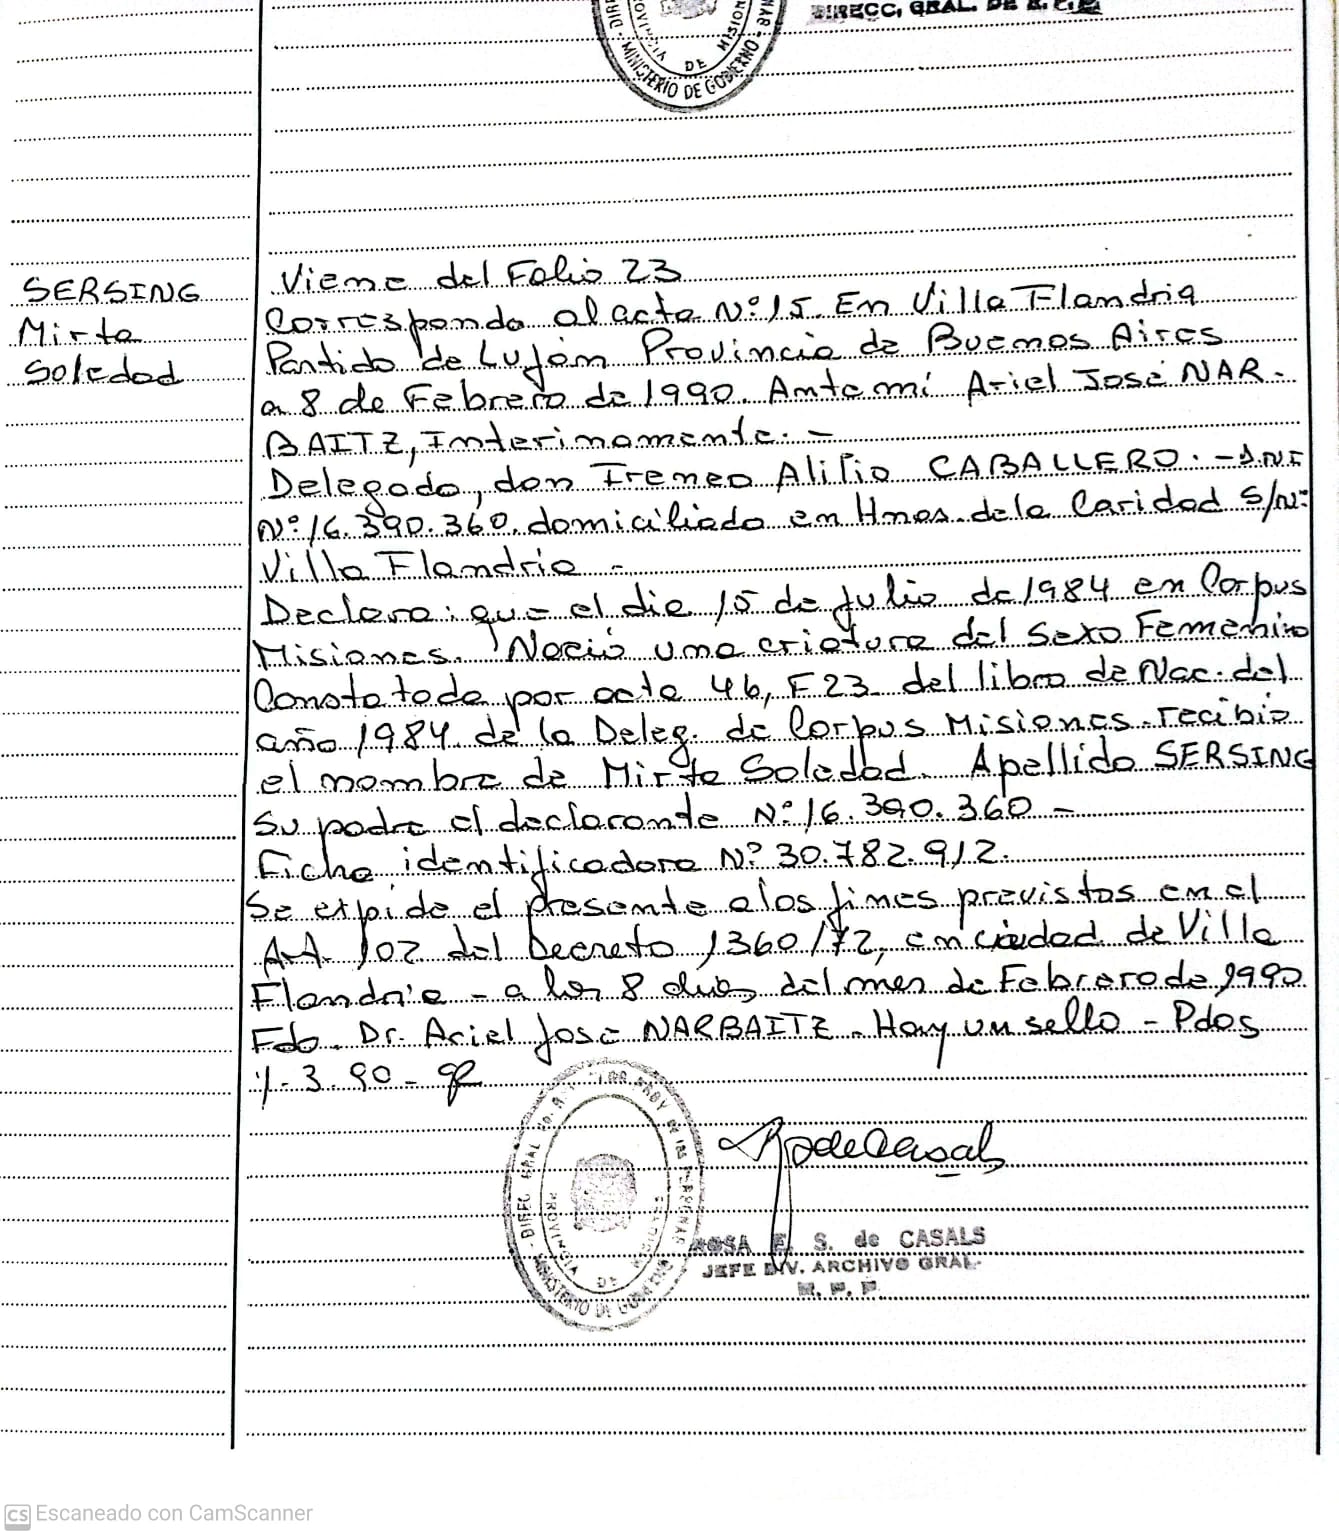 DIRECC. GRAL. DE R. P.
PROVINCIA DE MISIONES
MINISTERIO DE GOBIERNO
SERSING
Mirta
Soledad
Viene del Folio 23
Corresponde al acta Nº 15. En Villa Flandria
Partido de Luján Provincia de Buenos Aires
a 8 de Febrero de 1990. Ante mí Ariel José NAR-
BAITZ, Interinamente. -
Delegado, don Ireneo Alipio CABALLERO. - D.N.I
Nº 16.390.360. domiciliado en Hnos. de la Caridad S/Nº
Villa Flandria -
Declara: que el dia 15 de Julio de 1984 en Corpus
Misiones. Nació una criatura del sexo Femenino
Constatada por acta 46, F 23 del libro de Nac. del
año 1984. de la Deleg. de Corpus Misiones. recibió
el nombre de Mirta Soledad. Apellido SERSING
Su padre el declarante Nº 16.390.360 -
Ficha identificadora Nº 30.782.912.
Se expide el presente a los fines previstos en el
Art. 102 del Decreto 1360/72, en ciudad de Villa
Flandria - a los 8 dias del mes de Febrero de 1990
Fdo. Dr. Ariel José NARBAITZ - Hay un sello - Pdos
1. 3. 90 -
DIREC. GRAL. DE LAS PERSONAS
PROVINCIA DE
MINISTERIO DE GOBIERNO
R de Casals
ROSA E. S. de CASALS
JEFE DIV. ARCHIVO GRAL.
R. P. P.
CS Escaneado con CamScanner